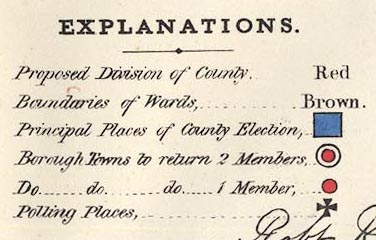 EXPLANATIONS.
Proposed Division of County. Red
Boundaries of Wards, Brown.
Principal Places of County Election,
Borough Towns to return 2 Members,
Do. do. do. 1 Member,
Polling Places,
Robt